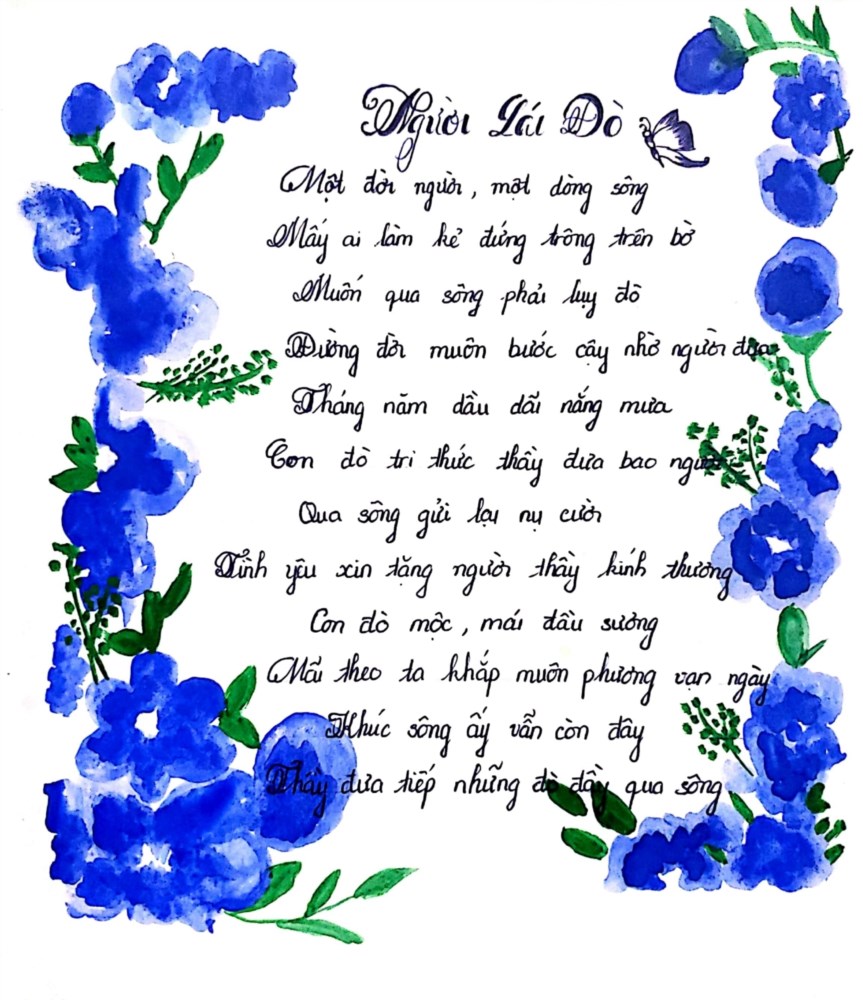 Người Lái Đò
Một đời người, một dòng sông
Mấy ai làm kẻ đứng trông trên bờ
Muốn qua sông phải luỵ đò
Đường đời muôn bước cậy nhờ người đưa
Tháng năm dầu dãi nắng mưa
Con đò tri thức thầy đưa bao người
Qua sông gửi lại nụ cười
Tình yêu xin tặng người thầy kính thương
Con đò mộc, mái đầu sương
Mãi theo ta khắp muôn phương vạn ngày
Khúc sông ấy vẫn còn đây
Thầy đưa tiếp những đò đầy qua sông